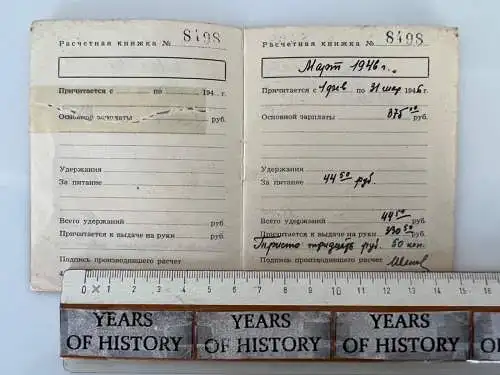 Расчетная книжка № 8498
Причитается с по 194 г.
Основной зарплаты руб.
Удержания
За питание
Всего удержаний руб.
Причитается к выдаче на руки руб.
Подпись производившего расчет
Расчетная книжка № 8498
Март 1946 г.
Причитается с 1 по 31 мар. 1946 г.
Основной зарплаты 375 00 руб.
Удержания
За питание 44 50 руб.
Всего удержаний 44 50 руб.
Причитается к выдаче на руки 330 50 руб.
Триста тридцать руб. 50 коп.
Подпись производившего расчет
0 1 2 3 4 5 6 7 8 9 10 11 12 13 14 15 16
YEARS OF HISTORY YEARS OF HISTORY YEARS OF HISTORY